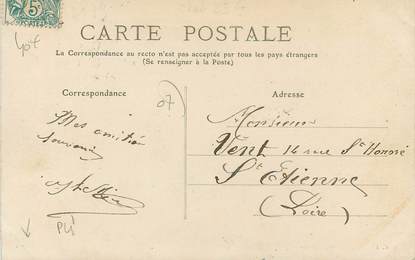 5c
CARTE POSTALE
La Correspondance au recto n'est pas acceptée par tous les pays étrangers
(Se renseigner à la Poste)
Correspondance
Mes amitiés
souvenir
07
Adresse
Monsieur
Vent 14 rue St Honoré
St Etienne
(Loire)